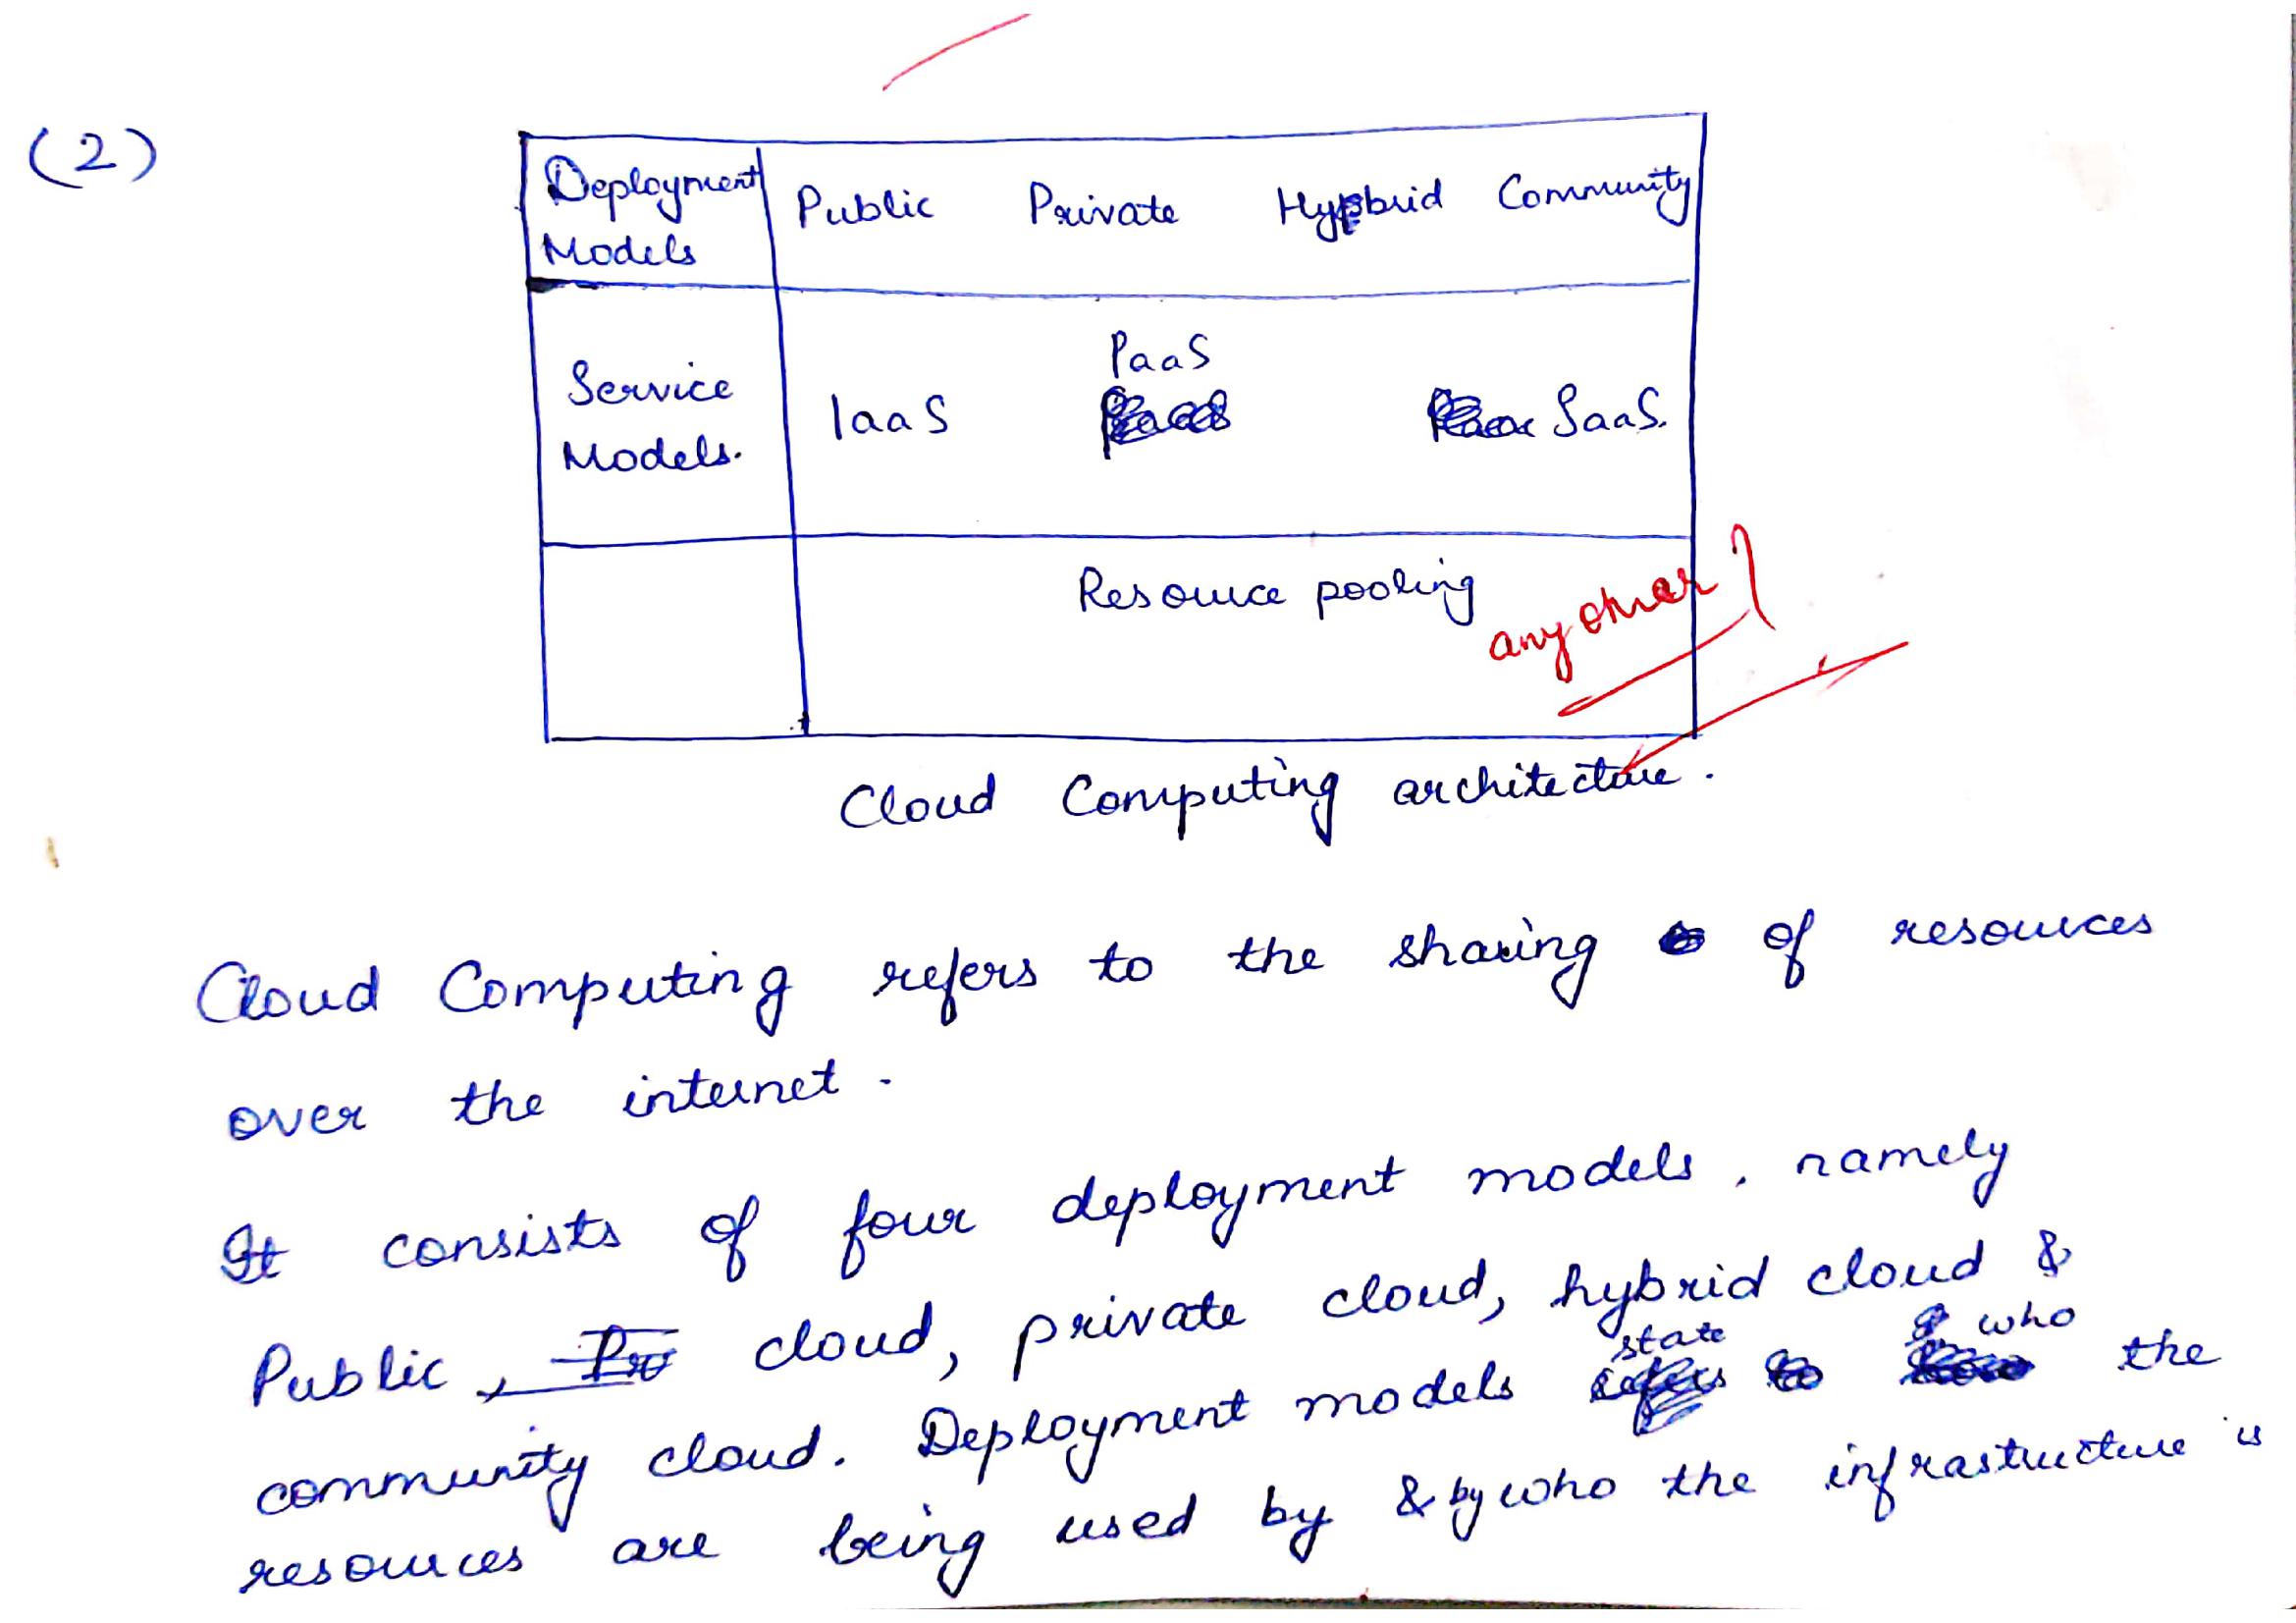 (2)
Deployment Models Public Private Hybrid Community
PaaS
Service Models. IaaS SaaS.
Resource pooling
any other?
Cloud Computing architecture.
Cloud Computing refers to the sharing of resources
over the internet.
It consists of four deployment models, namely
Public, cloud, private cloud, hybrid cloud &
community cloud. Deployment models state who the
resources are being used by & by who the infrastructure is